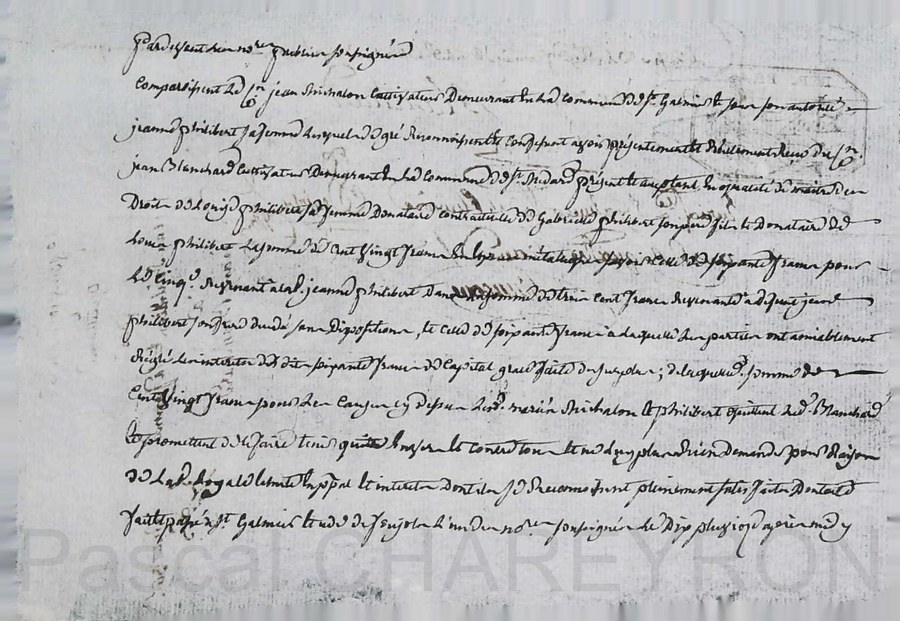 Pardevant les no.res publics soussignés
Comparaissent le C.n jean Michalon Cultivateur Demeurant en la commune de st. Galmier et sous son autorité
jeanne philibert sa femme lesquels de gré Reconnoissent et Confessent avoir présentement et Réellement Reçu du C.n
jean Blanchard Cultivateur Demeurant en la Commune de st. Medard présent et acceptant en qualité de maitre des
Droits de Louise philibert sa femme Donataire contractuelle de Gabriel philibert son père fils et Donataire de
Louis philibert La somme de Cent vingt francs en espèces métalliques savoir celle de soixante francs pour
le Cinq.e Revenant à lad. jeanne philibert Dans la somme de trois cent francs Revenante à defunt jean
philibert son frère décédé sans Disposition, et celle de soixante francs à laquelle les parties ont amiablement
Réglé les interets desdits soixante francs de Capital grace faite du surplus; de laquelle d. somme de
Cent vingt francs pour les Causes cy dessus lesd. mariés Michalon et philibert quittent led. Blanchard
et promettent de le faire tenir quitte envers et contre tous et ne luy plus Rien demander pour Raison
de lad. légalle en ppal et interets dont ils se Reconnoissent pleinement satisfaits Dont acte
fait et passé à st. Galmier étude de l'un des no.res soussignés le Dix pluviose après midy
Pascal CHAREYRON